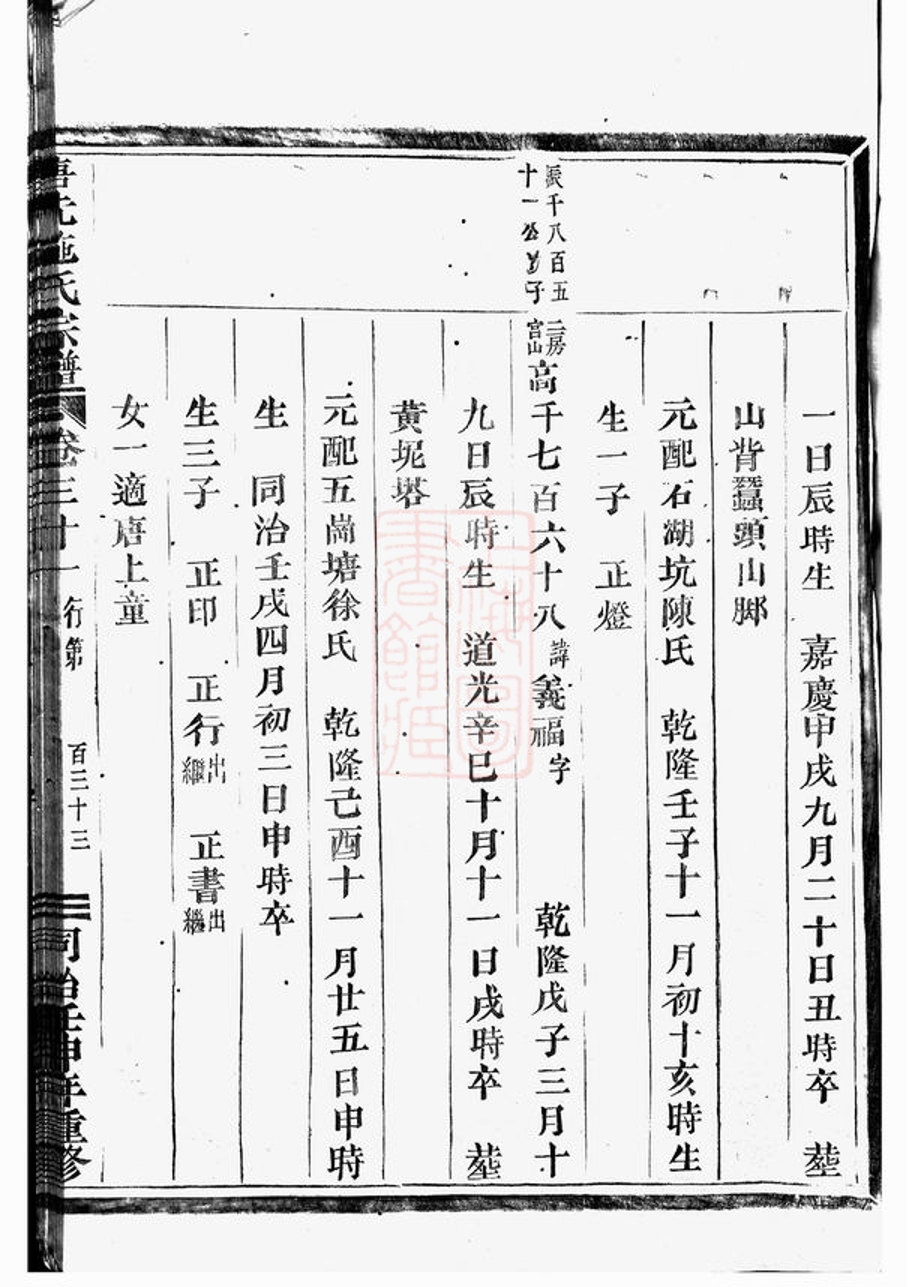 一日辰時生　嘉慶甲戌九月二十日丑時卒　葬
山背蠶頭山脚
元配石湖坑陳氏　乾隆壬子十一月初十亥時生
生一子　正燈
振千八百五
十一公 子
二房
宮山
高千七百六十八諱義福字　乾隆戊子三月十
九日辰時生　道光辛巳十月十一日戌時卒　葬
黃坭塔
元配五崗塘徐氏　乾隆己酉十一月廿五日申時
生　同治壬戌四月初三日申時卒
生三子　正印　正行出繼　正書出繼
女一適唐上童
施氏宗譜　卷三十一　行第　百三十三　同治壬申年重修
上海圖書館藏